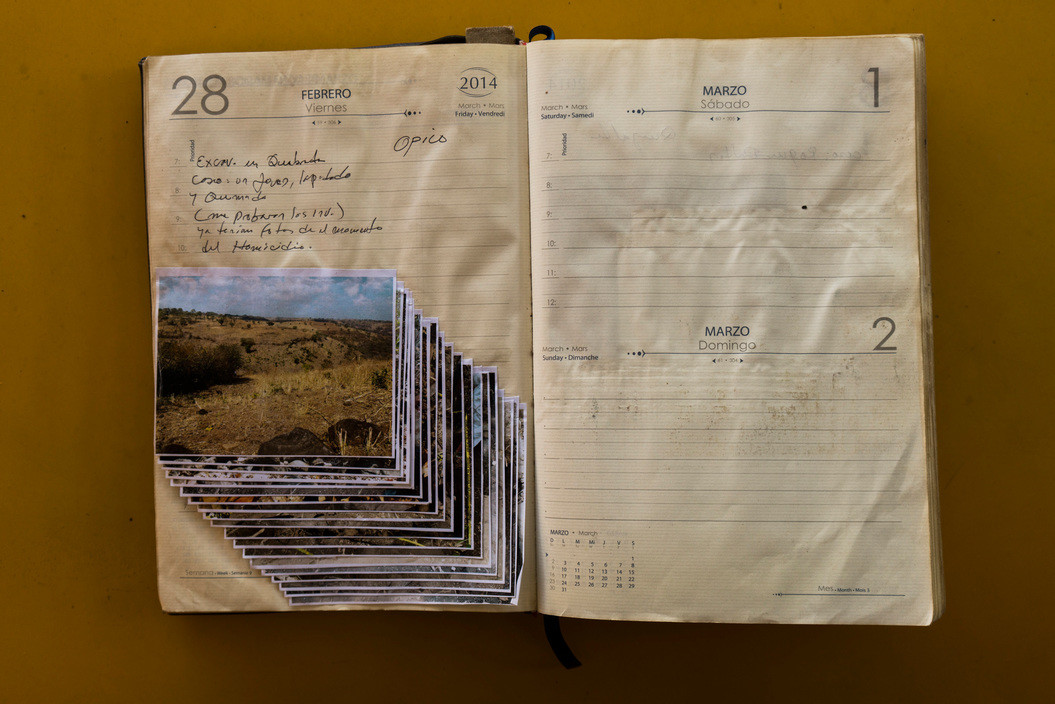 28
FEBRERO
Viernes
2014
March • Mars
Friday • Vendredi
Prioridad
Opico
7: Excav. en Quebrada
Caso: un Joven, lapidado
8: y Quemado
9: (me probaron los inv.)
ya tenian fotos de el momento
del Homicidio.
Semana • Week • Semaine 9
1
MARZO
Sábado
March • Mars
Saturday • Samedi
Prioridad
7:
8:
9:
10:
11:
12:
2
MARZO
Domingo
March • Mars
Sunday • Dimanche
MARZO • March
D L M Mi J V S
1
2 3 4 5 6 7 8
9 10 11 12 13 14 15
16 17 18 19 20 21 22
23 24 25 26 27 28 29
30 31
Mes • Month • Mois 3